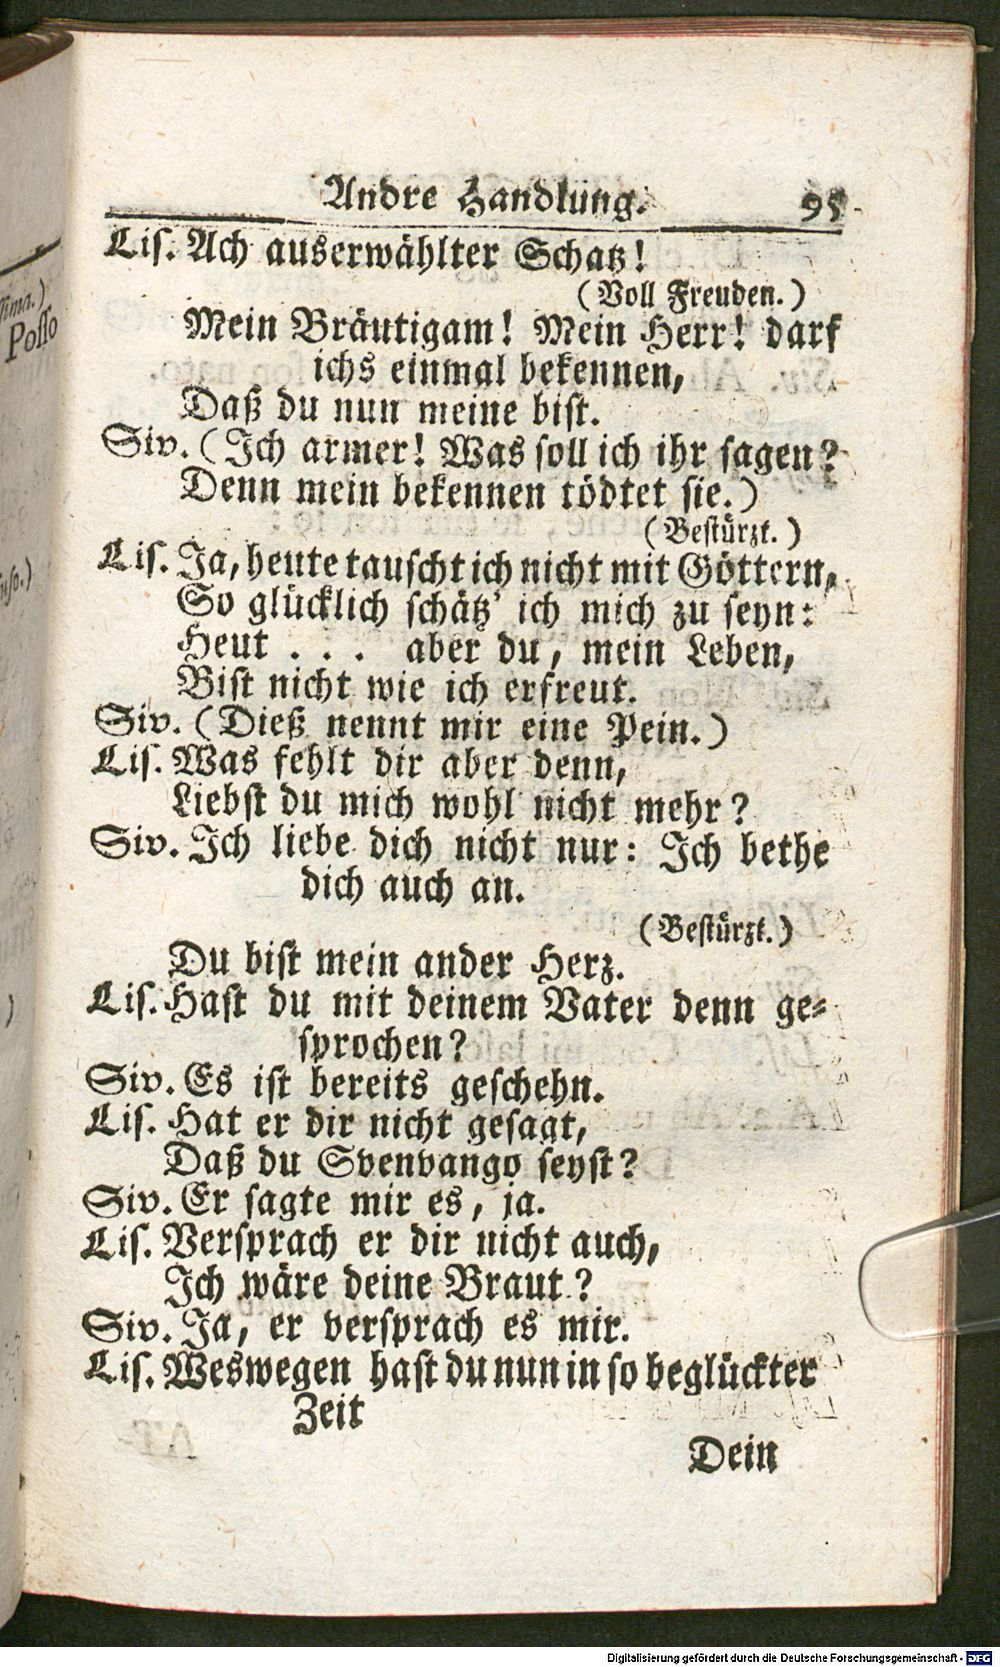 Andre Handlung. 95
Lis. Ach auserwählter Schatz!
(Voll Freuden.)
Mein Bräutigam! Mein Herr! darf
ichs einmal bekennen,
Daß du nun meine bist.
Siv. (Ich armer! Was soll ich ihr sagen?
Denn mein bekennen tödtet sie.)
(Bestürzt.)
Lis. Ja, heute tauscht ich nicht mit Göttern,
So glücklich schätz' ich mich zu seyn:
Heut . . . aber du, mein Leben,
Bist nicht wie ich erfreut.
Siv. (Dieß nennt mir eine Pein.)
Lis. Was fehlt dir aber denn,
Liebst du mich wohl nicht mehr?
Siv. Ich liebe dich nicht nur: Ich bethe
dich auch an.
(Bestürzt.)
Du bist mein ander Herz.
Lis. Hast du mit deinem Vater denn ge-
sprochen?
Siv. Es ist bereits geschehn.
Lis. Hat er dir nicht gesagt,
Daß du Svenvango seyst?
Siv. Er sagte mir es, ja.
Lis. Versprach er dir nicht auch,
Ich wäre deine Braut?
Siv. Ja, er versprach es mir.
Lis. Weswegen hast du nun in so beglückter
Zeit
Dein
ssima.)
Posso
uso.)
)
Digitalisierung gefördert durch die Deutsche Forschungsgemeinschaft - DFG